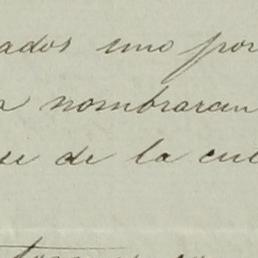 ados uno por
a nombraran
se de la cue